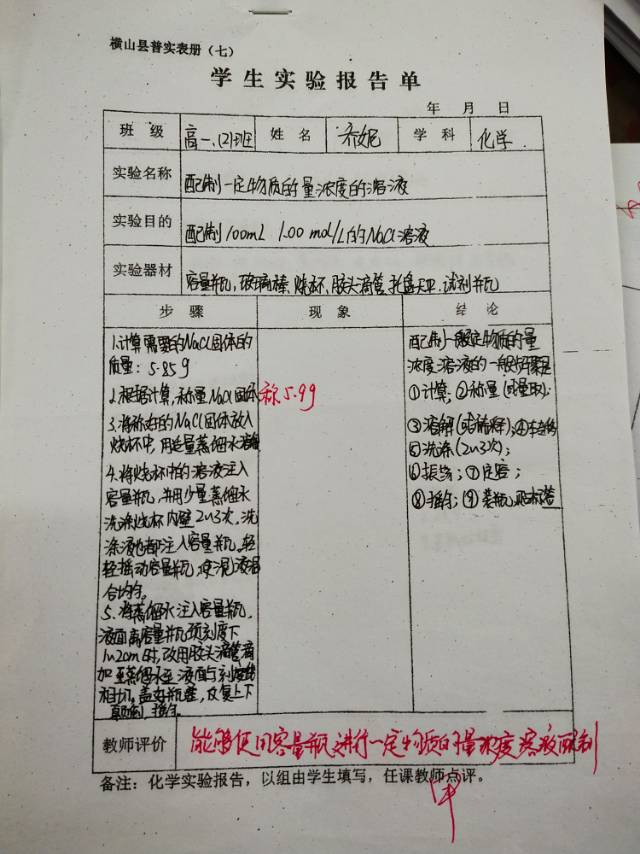 横山县普实表册（七）
学生实验报告单
年 月 日
班级 高一.(2)班 姓名 乔妮 学科 化学
实验名称 配制一定物质的量浓度的溶液
实验目的 配制100mL 1.00 mol/L的NaCl溶液
实验器材 容量瓶,玻璃棒、烧杯、胶头滴管、托盘天平、试剂瓶
步骤 现象 结论
1.计算需要的NaCl固体的
质量：5.85g
2.根据计算,称量NaCl固体
3.将称好的NaCl固体放入
烧杯中,用适量蒸馏水溶解
4.将烧杯中的溶液注入
容量瓶,并用少量蒸馏水
洗涤烧杯内壁2~3次,洗
涤液也都注入容量瓶。轻
轻摇动容量瓶,使混液混
合均匀。
5.将蒸馏水注入容量瓶,
液面离容量瓶颈刻度下
1~2cm时,改用胶头滴管滴
加至蒸馏水至液面与刻度线
相切。盖好瓶塞,反复上下
颠倒,摇匀。
称5.9g
配制一般定物质的量
浓度溶液的一般步骤是
①计算；②称量(或量取)；
③溶解(或稀释)；④
⑤洗涤(2~3次)；
⑥振荡；⑦定容；
⑧摇匀；⑨装瓶
教师评价 能够使用容量瓶进行一定物质的量浓度溶液配制
备注：化学实验报告，以组由学生填写，任课教师点评。